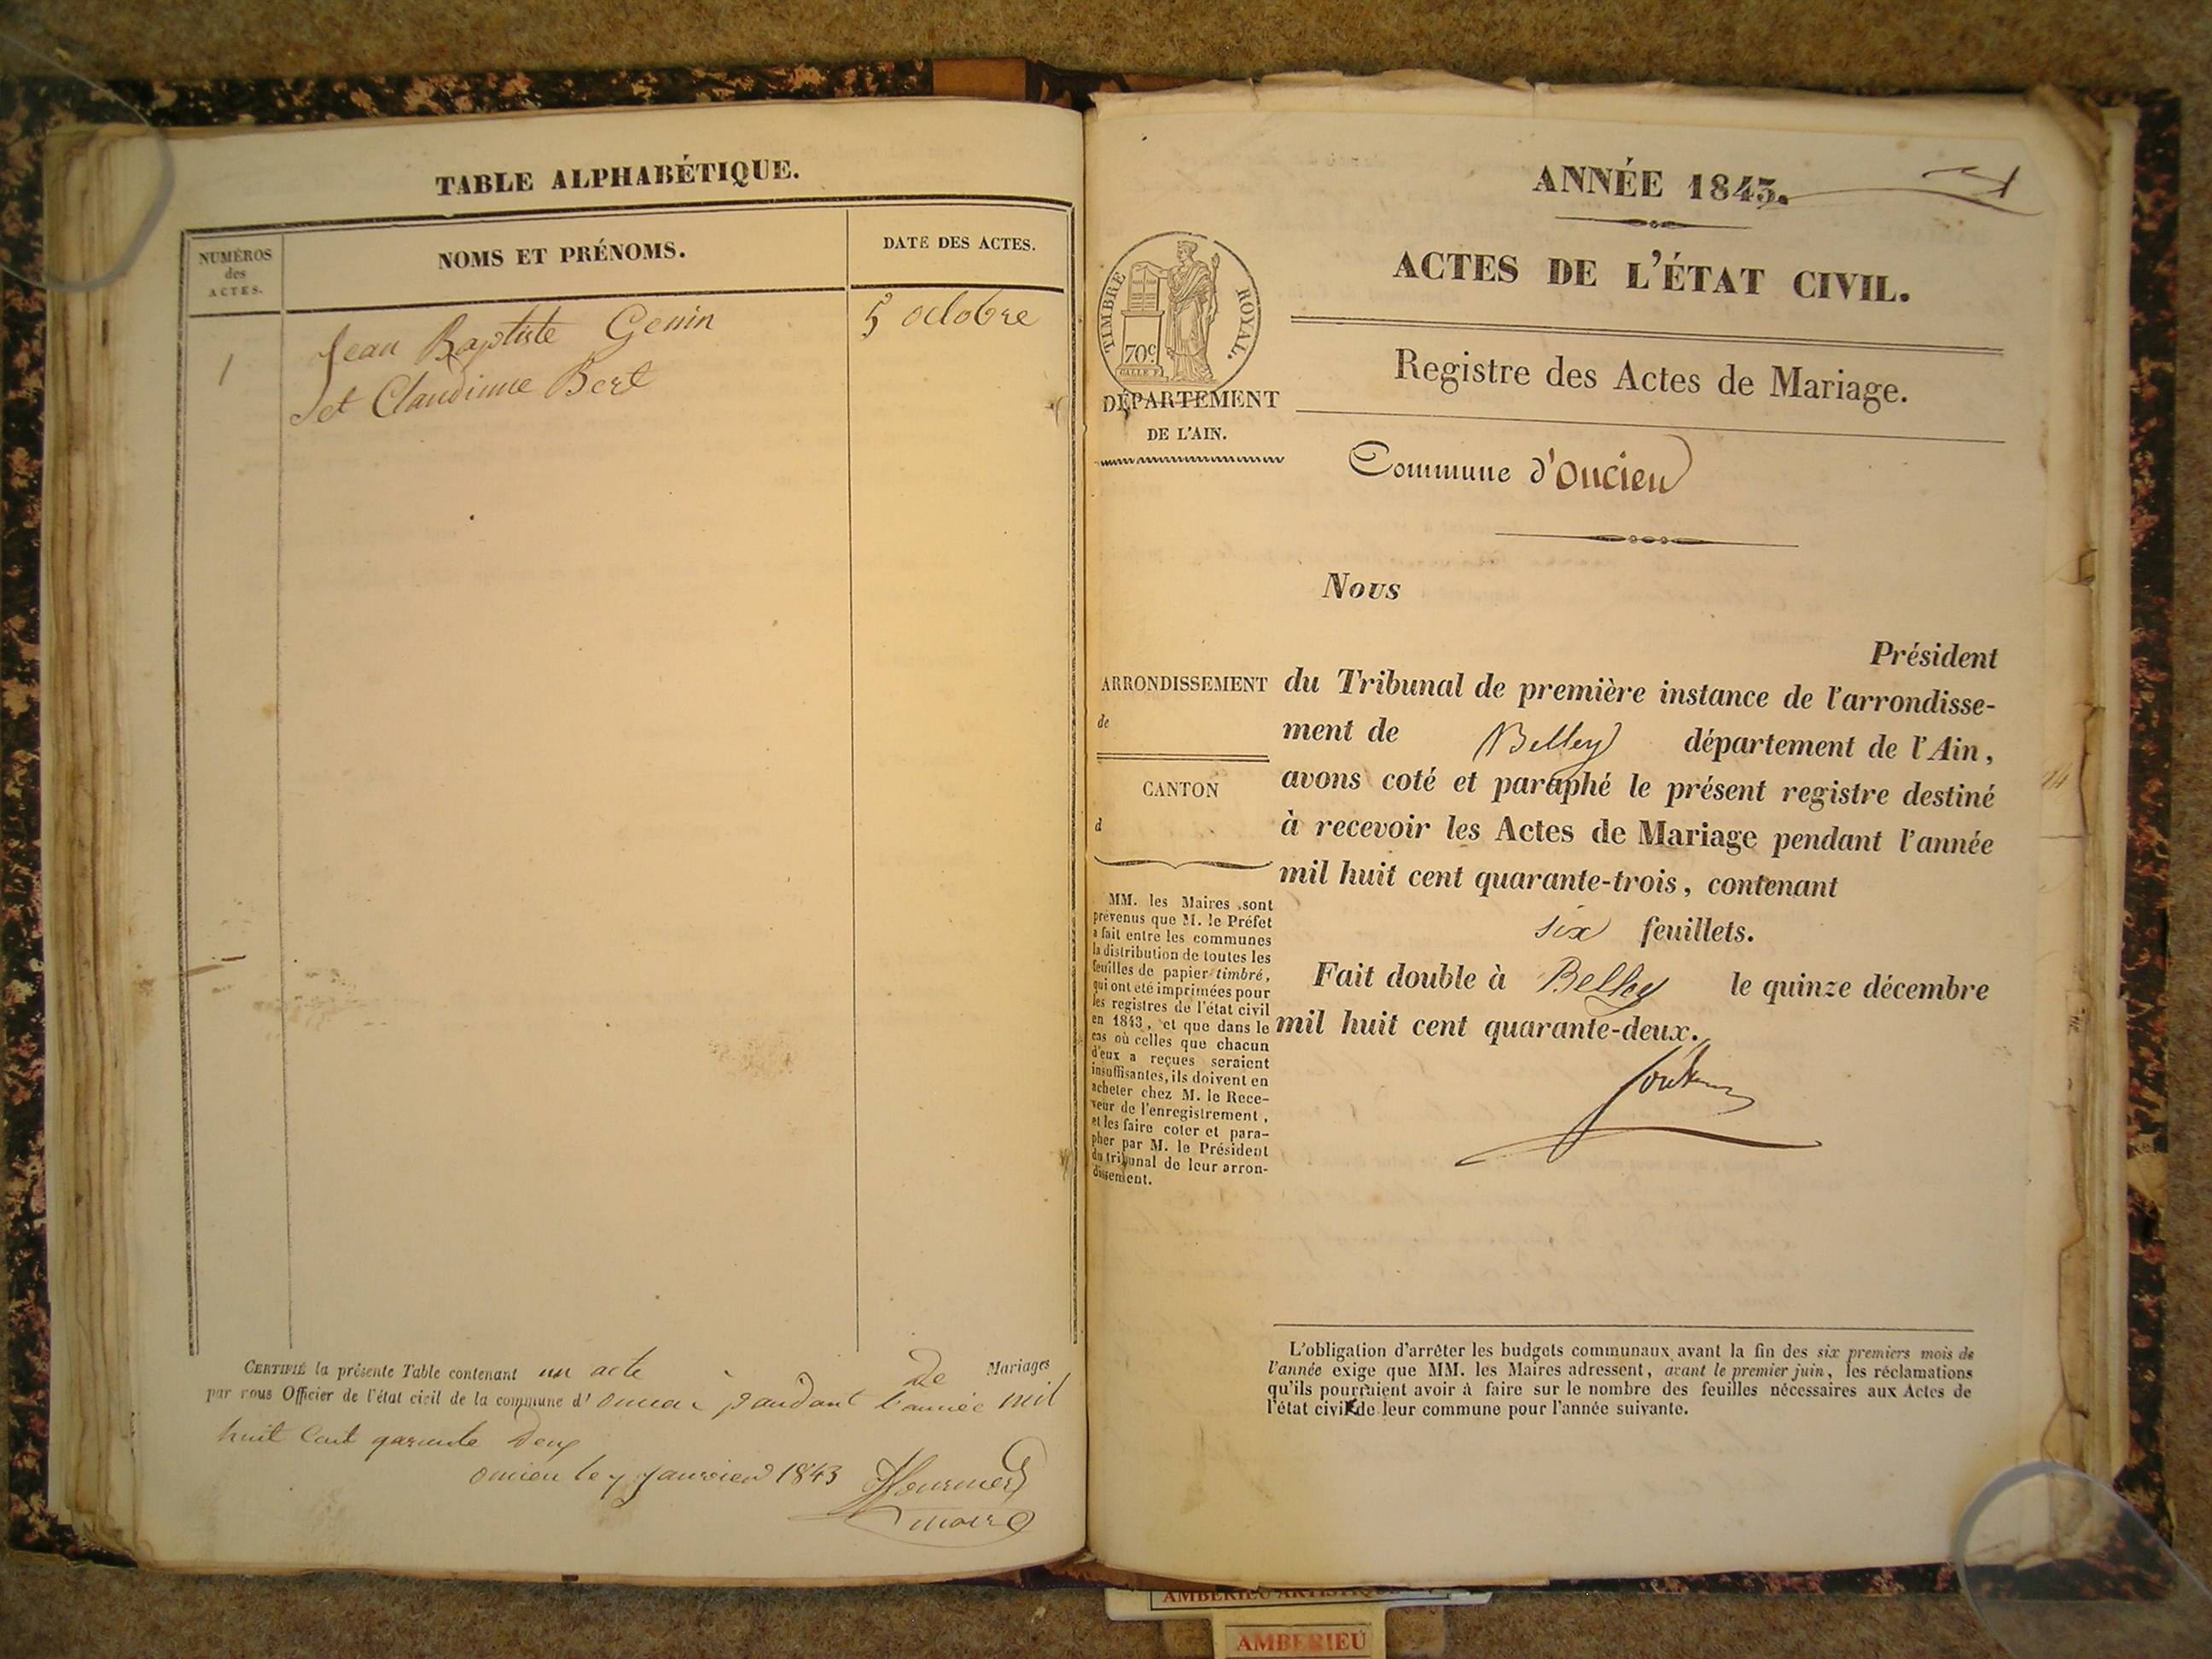 TABLE ALPHABÉTIQUE.
NUMÉROS
des
ACTES.
NOMS ET PRÉNOMS.
DATE DES ACTES.
1
Jean Baptiste Genin
5 octobre
et Claudinne Bert
CERTIFIÉ la présente Table contenant un acte De Mariages
par nous Officier de l'état civil de la commune d' pandant l'année mil
huit Cent Deux
oncieu le 7 janvier 1843
maire
ANNÉE 1843.
ACTES DE L'ÉTAT CIVIL.
TIMBRE ROYAL.
70c
DÉPARTEMENT
DE L'AIN.
Registre des Actes de Mariage.
Commune d'Oncieu
Nous
Président
ARRONDISSEMENT
de
CANTON
d
du Tribunal de première instance de l'arrondisse-
ment de Belley département de l'Ain,
avons coté et paraphé le présent registre destiné
à recevoir les Actes de Mariage pendant l'année
mil huit cent quarante-trois, contenant
six feuillets.
Fait double à Belley le quinze décembre
mil huit cent quarante-deux.
MM. les Maires sont
prévenus que M. le Préfet
a fait entre les communes
la distribution de toutes les
feuilles de papier timbré,
qui ont été imprimées pour
les registres de l'état civil
en 1843, et que dans le
cas où celles que chacun
d'eux a reçues seraient
insuffisantes, ils doivent en
acheter chez M. le Rece-
veur de l'enregistrement,
et les faire coter et para-
pher par M. le Président
du tribunal de leur arron-
dissement.
L'obligation d'arrêter les budgets communaux avant la fin des six premiers mois de
l'année exige que MM. les Maires adressent, avant le premier juin, les réclamations
qu'ils pourraient avoir à faire sur le nombre des feuilles nécessaires aux Actes de
l'état civil de leur commune pour l'année suivante.
AMBERIEU